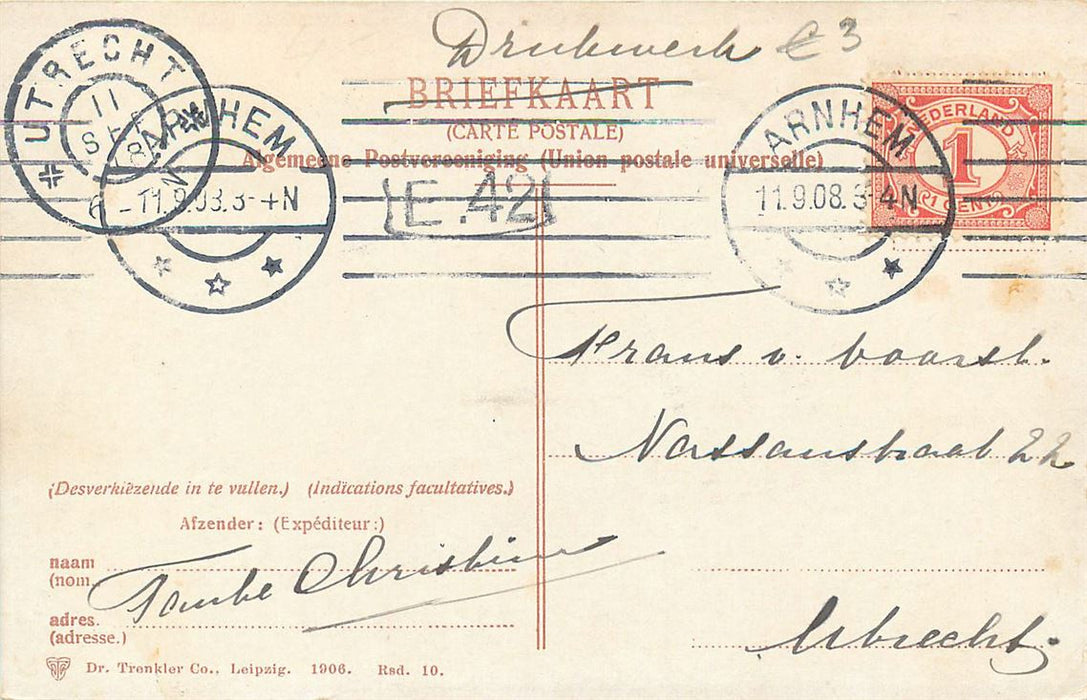 Drukwerk € 3
BRIEFKAART
(CARTE POSTALE)
Algemeene Postvereeniging (Union postale universelle)
UTRECHT
11
SEP
8
N
ARNHEM
11.9.08.3-4N
E.42
ARNHEM
11.9.08.3-4N
NEDERLAND
1
1 CENT
Frans v. Voorst.
Nassaustraat 22
Utrecht.
(Desverkiezende in te vullen.) (Indications facultatives.)
Afzender: (Expéditeur:)
naam
(nom.
Tante Christine
adres.
(adresse.)
Dr. Trenkler Co., Leipzig. 1906. Rsd. 10.